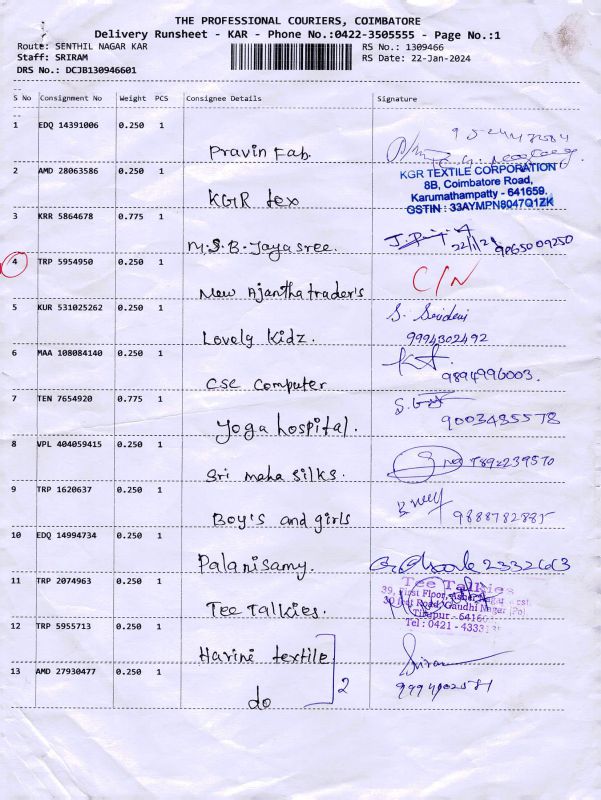 THE PROFESSIONAL COURIERS, COIMBATORE
Delivery Runsheet - KAR - Phone No.:0422-3505555 - Page No.:1
Route: SENTHIL NAGAR KAR RS No.: 1309466
Staff: SRIRAM RS Date: 22-Jan-2024
DRS No.: DCJB130946601
S No Consignment No Weight PCS Consignee Details Signature
1 EDQ 14391006 0.250 1
Pravin Fab.
2 AMD 28063586 0.250 1
KGR tex
KGR TEXTILE CORPORATION
8B, Coimbatore Road,
Karumathampatty - 641659.
GSTIN : 33AYMPN8047Q1ZK
3 KRR 5864678 0.775 1
M.S.B. Jayasree. 9065009250
4 TRP 5954950 0.250 1
New Ajantha trader's C/N
5 KUR 531025262 0.250 1 S. Sridevi
Lovely Kidz. 9994302492
6 MAA 108084140 0.250 1
CSC Computer 9894996003.
7 TEN 7654920 0.775 1
Yoga hospital. 9003485578
8 VPL 404059415 0.250 1
Sri maha silks.
9 TRP 1620637 0.250 1
Boy's and girls 9888782885
10 EDQ 14994734 0.250 1
Palanisamy.
11 TRP 2074963 0.250 1
Tee Talkies.
Tee Talkies
39, First Floor,
30 feet Road, Gandhi Nagar (Po)
Tirupur - 64160
Tel : 0421 - 4333
12 TRP 5955713 0.250 1
Harini textile Sriram
13 AMD 27930477 0.250 1 2
do